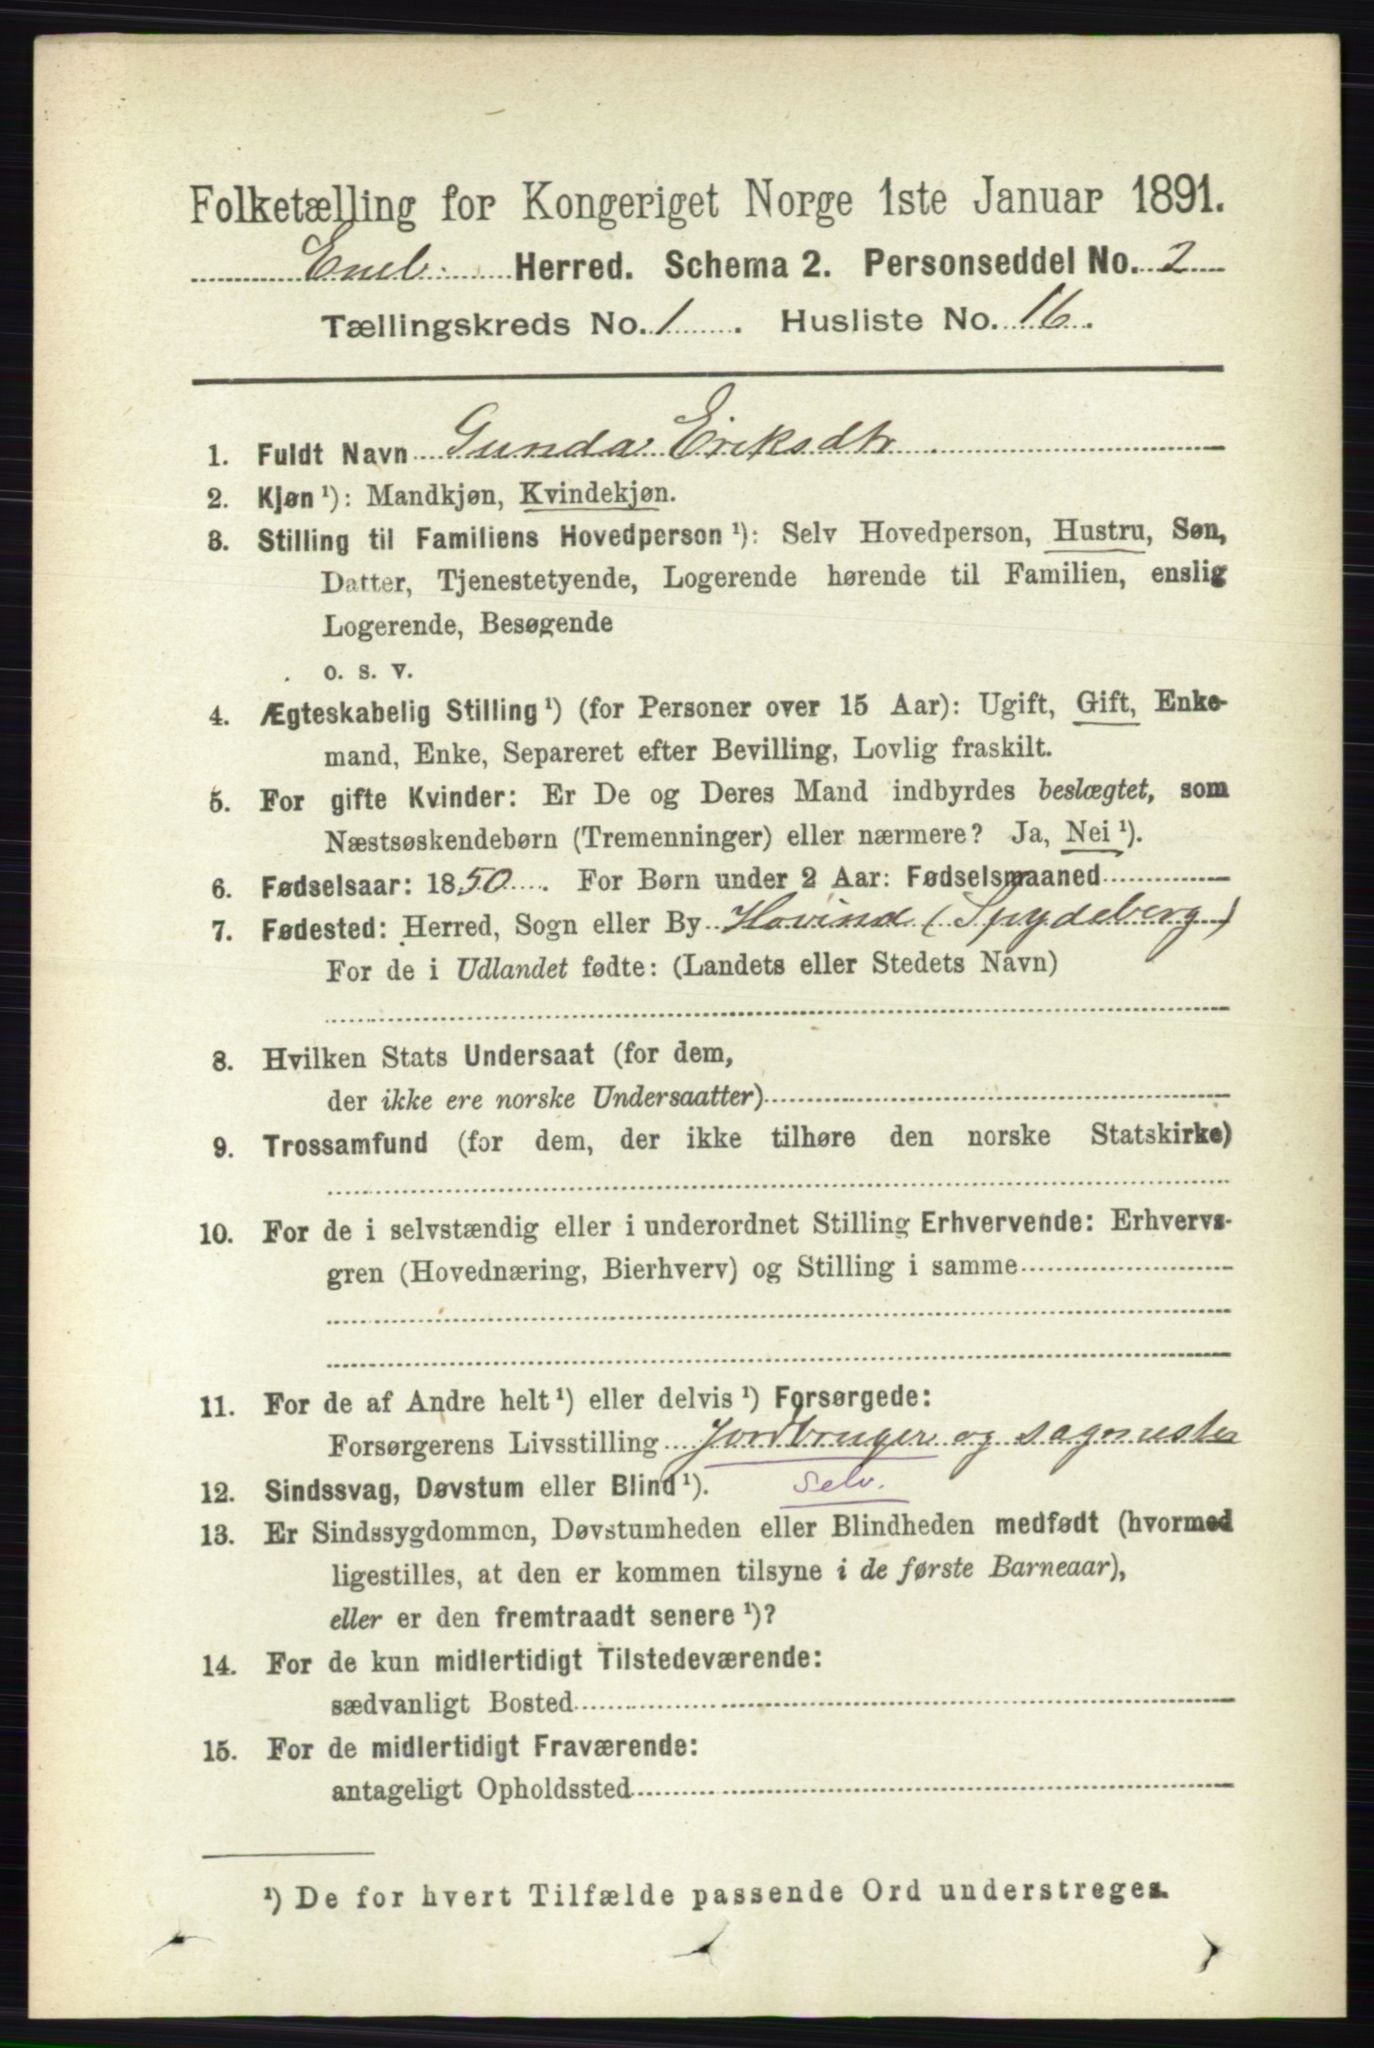 Folketælling for Kongeriget Norge 1ste Januar 1891.
Eneb. Herred. Schema 2. Personseddel No. 2
Tællingskreds No. 1. Husliste No. 16.
1. Fuldt Navn Gunda Eriksdtr
2. Kjøn ¹): Mandkjøn, Kvindekjøn.
3. Stilling til Familiens Hovedperson ¹): Selv Hovedperson, Hustru, Søn,
Datter, Tjenestetyende, Logerende hørende til Familien, enslig
Logerende, Besøgende
o. s. v.
4. Ægteskabelig Stilling ¹) (for Personer over 15 Aar): Ugift, Gift, Enke-
mand, Enke, Separeret efter Bevilling, Lovlig fraskilt.
5. For gifte Kvinder: Er De og Deres Mand indbyrdes beslægtet, som
Næstsøskendebørn (Tremenninger) eller nærmere? Ja, Nei ¹).
6. Fødselsaar: 1850. For Børn under 2 Aar: Fødselsmaaned
7. Fødested: Herred, Sogn eller By Hovind (Spydeberg)
For de i Udlandet fødte: (Landets eller Stedets Navn)
8. Hvilken Stats Undersaat (for dem,
der ikke ere norske Undersaatter)
9. Trossamfund (for dem, der ikke tilhøre den norske Statskirke)
10. For de i selvstændig eller i underordnet Stilling Erhvervende: Erhvervs-
gren (Hovednæring, Bierhverv) og Stilling i samme
11. For de af Andre helt ¹) eller delvis ¹) Forsørgede:
Forsørgerens Livsstilling Jordbruger og sagmester
12. Sindssvag, Døvstum eller Blind ¹). Selv.
13. Er Sindssygdommen, Døvstumheden eller Blindheden medfødt (hvormed
ligestilles, at den er kommen tilsyne i de første Barneaar),
eller er den fremtraadt senere ¹)?
14. For de kun midlertidigt Tilstedeværende:
sædvanligt Bosted
15. For de midlertidigt Fraværende:
antageligt Opholdssted
¹) De for hvert Tilfælde passende Ord understreges.